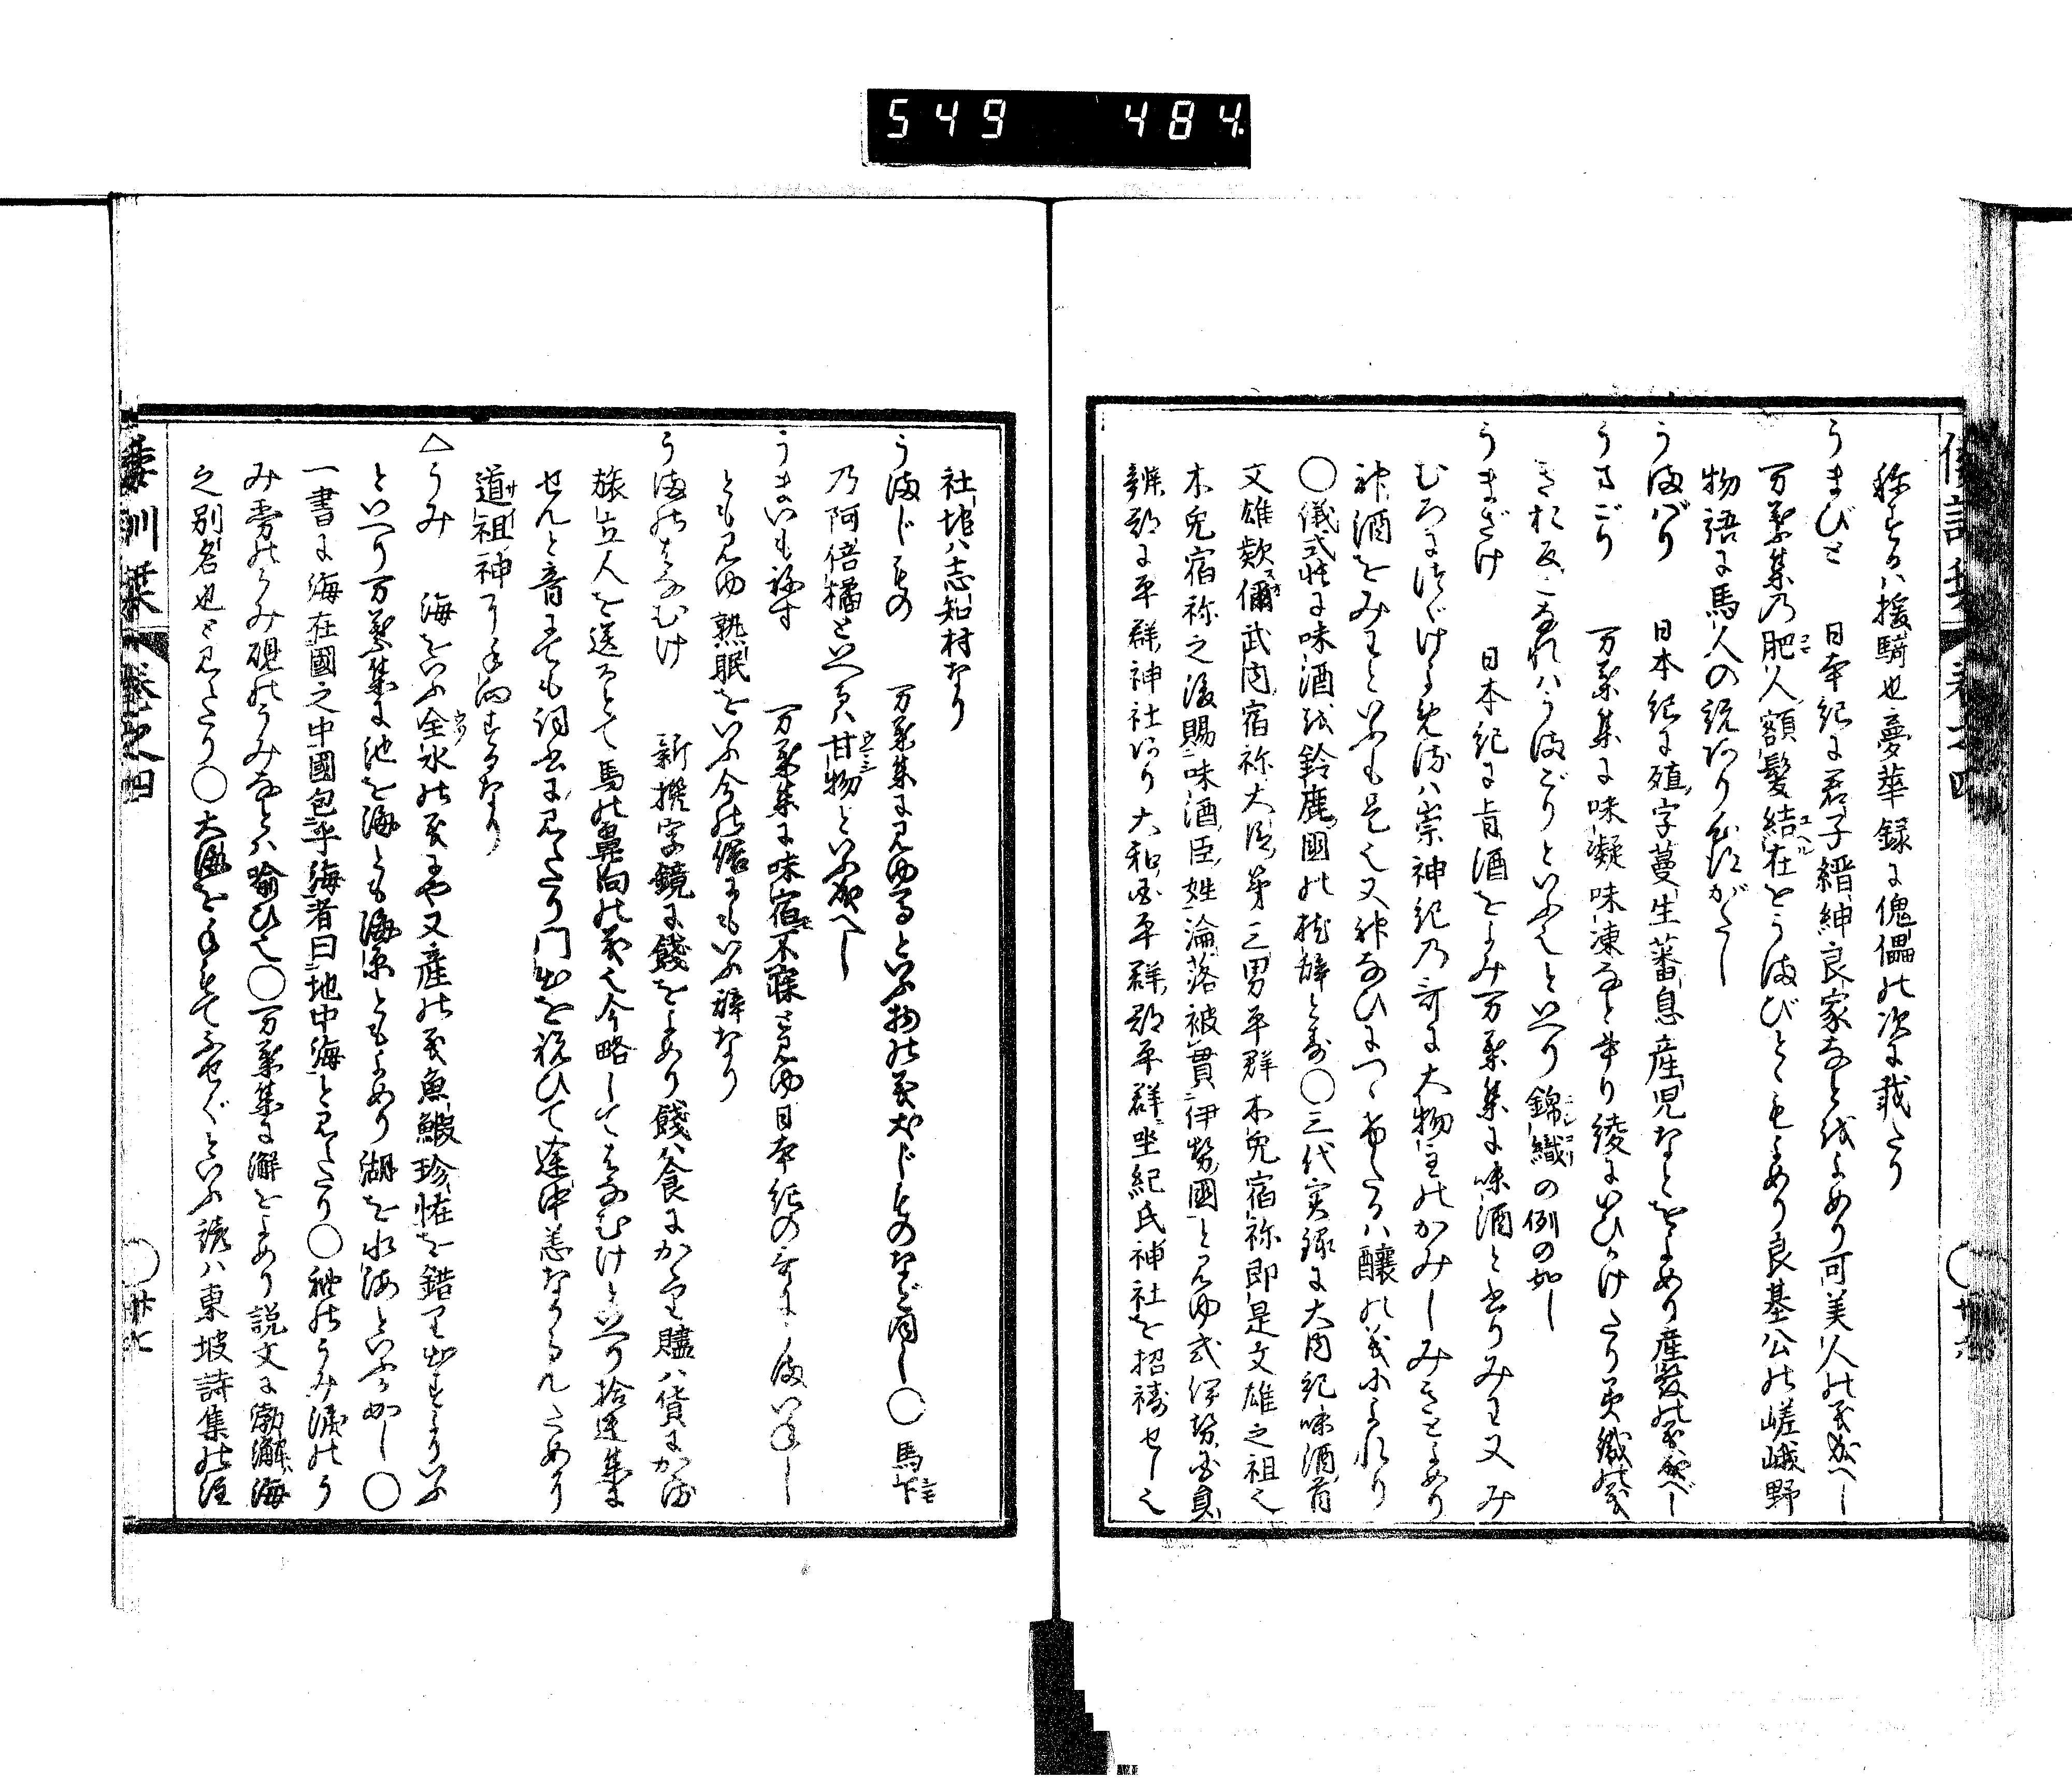 549 484
称するハ援騎也夢華録に傀儡の次に載たり
うまびと 日本紀に君子縉紳良家なとをよめり可美人の義成へし
万葉集乃肥人額髪結在をうまびとゝもよめり良基公の嵯峨野
物語に馬人の説ありうけがたし
うまばり 日本紀に殖字蔓生蕃息産児なとをよめり産發の義成べし
うまごり 万葉集に味凝味凍なと書り綾にいひかけたり美織の義
きおり反こなれハうまごりといふ也といへり錦織の例の如し
うまざけ 日本紀に旨酒をよみ万葉集に味酒と書りみわ又み
むろにつゞけよめるハ崇神紀の哥に大物主のかみしみきとよめり
神酒をみわといふも是也又神なひにつゝけたるハ釀の義によれり
○儀式帳に味酒鈴鹿國の枕辞とす○三代実録に大内記味酒首
文雄款偁武内宿祢大臣第三男平群木兎宿祢即是文雄之祖也
木兎宿祢之後賜味酒臣姓淪落被貫伊勢國と見ゆ式伊勢国員
辨郡に平群神社あり大和国平群郡平群坐紀氏神社を招祷せし也
社地ハ志知村なり
うまじもの 万葉集に見ゆるといふ物の義犬じものなど同し○馬下
乃阿倍橘といへるハ甘物といふ成へし
うまいもねす 万葉集に味宿不寐と見ゆ日本紀の哥にうまいねし
とも見ゆ熟眠をいふ今の俗にもいふ辞なり
うまのはなむけ 新撰字鏡に餞をよめり餞ハ食にかゝり贐ハ貨にかゝる
旅立人を送るとて馬の鼻向の義也今略してはなむけといへり拾遺集に
せんと音にても詞書に見えたり門出を祝ひて途中恙なからんため
道祖神に手向するなり
△うみ 海をいふ全水の義にや又産の義魚鰕珍怪を錯り出すよりいふ
といへり万葉集に池を海とも海原ともよめり湖を水海といふか如し○
一書に海在國之中國包乎海者曰地中海と見えたり○袖のうみ涙のう
み雪のうみ硯のうみなとハ喩ひ也○万葉集に澥をよめり説文に渤澥海
之別名也と見えたり○大海を手もてふせぐといふ諺ハ東坡詩集の註
倭訓栞 巻之四 ○廿七